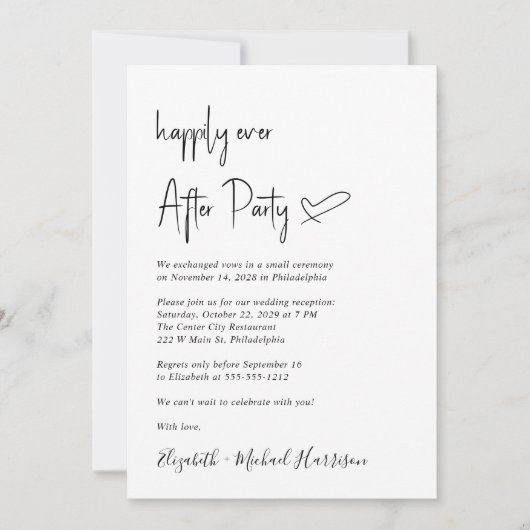 happily ever
After Party
We exchanged vows in a small ceremony
on November 14, 2028 in Philadelphia
Please join us for our wedding reception:
Saturday, October 22, 2029 at 7 PM
The Center City Restaurant
222 W Main St, Philadelphia
Regrets only before September 16
to Elizabeth at 555-555-1212
We can't wait to celebrate with you!
With love,
Elizabeth + Michael Harrison